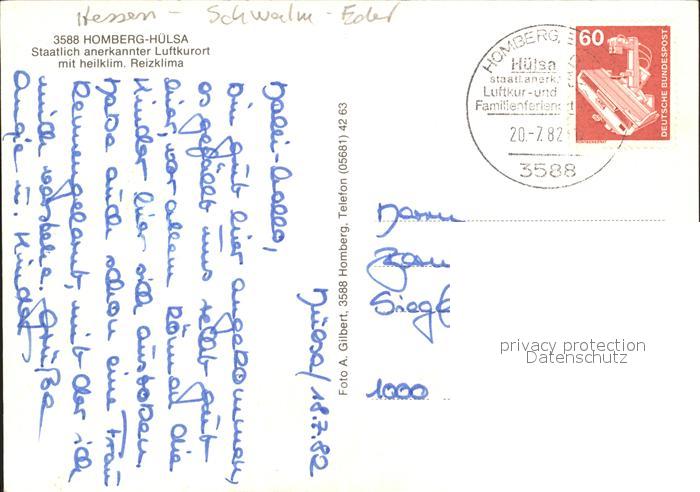 Hessen - Schwalm-Eder
3588 HOMBERG-HÜLSA
Staatlich anerkannter Luftkurort
mit heilklim. Reizklima
Hülsa/18.7.82
Halli-Hallo,
Bin gut hier angekommen,
es gefällt uns selbst gut
hier, vor allem können die
Kinder hier sich austoben.
Habe auch schon eine Frau
kennengelernt, mit der ich
mich verstehe. Grüße
Angie u. Kinder
Foto A. Gilbert, 3588 Homberg, Telefon (05681) 42 63
HOMBERG,
Hülsa
staatl. anerk.
Luftkur- und
Familienferienort
20.-7.82
3588
60
DEUTSCHE BUNDESPOST
Herrn
Siegf
1000
privacy protection
Datenschutz